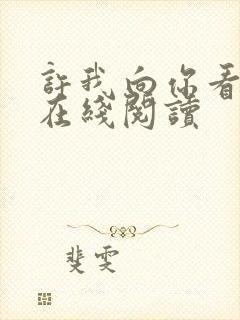 許我向你看
在綫閱讀
斐雯